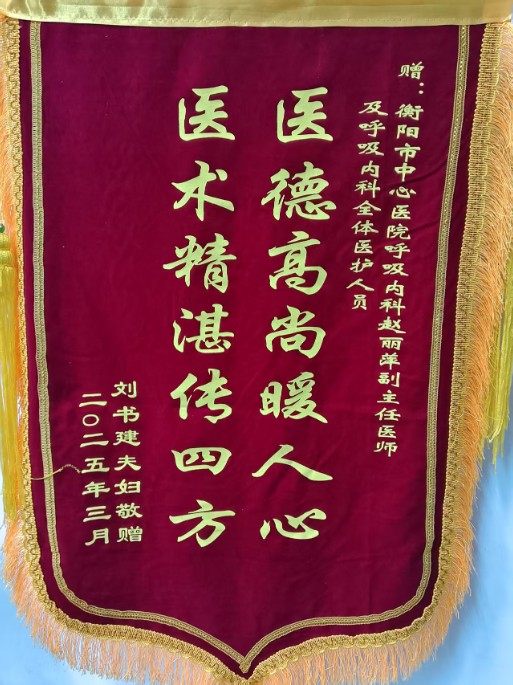 赠：衡阳市中心医院呼吸内科赵丽萍副主任医师
及呼吸内科全体医护人员
医德高尚暖人心
医术精湛传四方
刘书建夫妇敬赠
二〇二五年三月